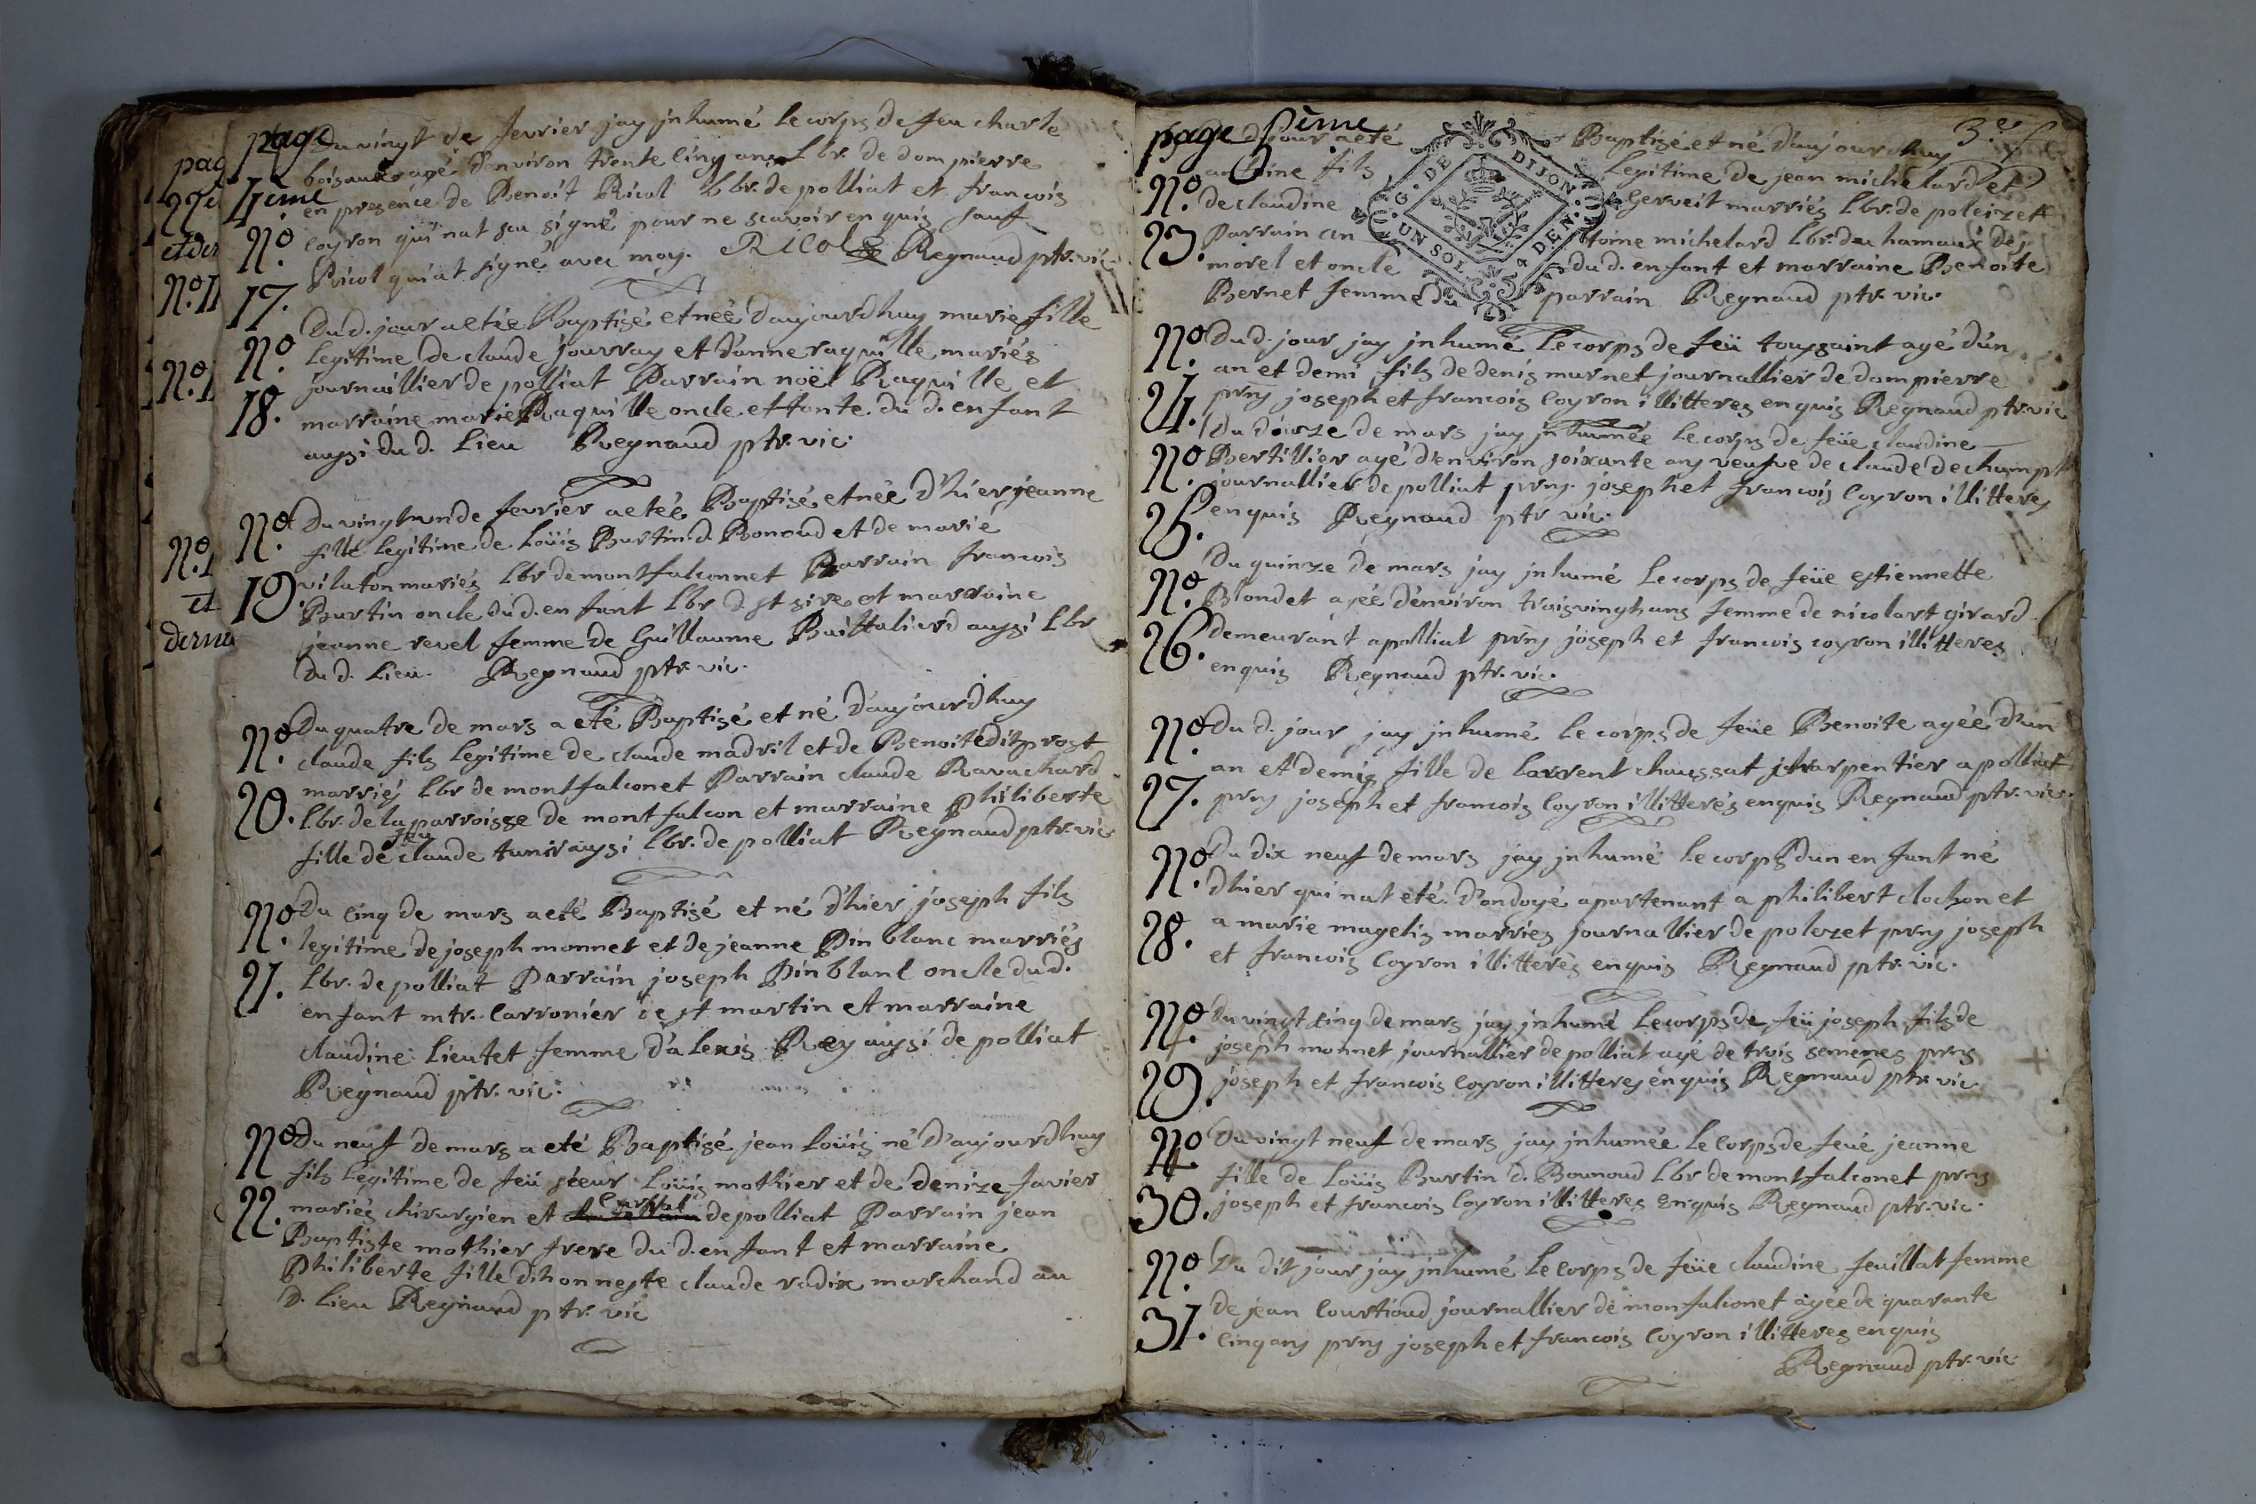 page
4eme
Du vingt de fevrier jay jnhumé le corps de feu charle
agé d'environ trente cinq ans Lbr. de dompierre
en presence de Benoit Ricol Lbr. de polliat et francois
coyron qui nat sçu signé pour ne scavoir enquis sauf
Ricol qui at signé avec moy. Ricol Regnaud ptr. vic.
No. 17.
Du d. jour a etée Baptisé et née d'aujourdhuy marie fille
legitime de claude jourray et d'anne raquille mariés
journaillier de polliat Parrain noël Raquille et
marraine marie Raquille oncle et tante du d. enfant
aussi du d. Lieu Regnaud ptr. vic.
No. 18.
Du vingt un de fevrier a etée Baptisé et née d'hier jeanne
fille legitime de Loüis Burtin d. Bonoud et de marie
vilaton mariés Lbr de montfalconnet Parrain francois
Burtin oncle du d. enfant Lbr d. st sire et marraine
jeanne revel femme de Guillaume Buittaliard aussi Lbr
du d. Lieu. Regnaud ptr. vic.
No. 19.
Du quatre de mars a eté Baptisé et né d'aujourdhuy
claude fils legitime de claude madril et de Benoite ditprost
marriés Lbr de montfalconet Parrain claude Ravachard
Lbr. de la parroisse de montfalcon et marraine philiberte
fille de feu claude tunir aussi Lbr. de polliat Regnaud ptr. vic
No. 20.
Du cinq de mars a eté Baptisé et né d'hier joseph fils
legitime de joseph monnet et de jeanne Pin blanc marriés
Lbr. de polliat Parrain joseph Pin blanc oncle du d.
enfant mtr. carronier de st martin et marraine
claudine Lieutet femme d'alexis Rey aussi de polliat
Regnaud ptr. vic.
No. 21.
Du neuf de mars a eté Baptisé jean Loüis né d'aujourdhuy
fils legitime de feü sieur Loüis mothier et de denize favier
mariés chirurgien et de polliat Parrain jean
Baptiste mothier frere du d. enfant et marraine
Philiberte fille d'honneste claude radix marchand au
d. Lieu Regnaud ptr. vic
No. 22.
page 5eme
3e f
Du d. jour a eté Baptisé et né d'aujourdhuy
antoine fils legitime de jean michelard et
de claudine Gerveit marriés Lbr. de poleizet
Parrain antoine michelard Lbr. du hamaux des
morel et oncle du d. enfant et marraine Benoite
Bernet femme du parrain Regnaud ptr. vic.
No. 23.
G. DE DIJON.
UN SOL 4 DEN.
Du d. jour jay jnhumé le corps de feü toussaint agé d'un
an et demi fils de denis murnet journallier de dompierre
prns joseph et francois coyron illitteres enquis Regnaud ptr. vic
No. 24.
Du douze de mars jay jnhumée le corps de feüe claudine
Bertillier agé d'environ soixante ans veufve de claude dechamp
journallier de polliat prns. joseph et francois coyron illitteres
enquis Regnaud ptr vic.
No. 25.
Du quinze de mars jay jnhumé le corps de feüe estiennette
Blondet agéé d'environ trois vingt ans femme de nicolart girard
demeurant a polliat prns joseph et francois coyron illitteres
enquis Regnaud ptr. vic.
No. 26.
Du d. jour jay jnhumé le corps de feüe Benoite agée d'un
an et demis fille de Laurent chaussat charpentier a polliat
prns joseph et francois coyron illitterés enquis Regnaud ptr. vic.
No. 27.
Du dix neuf de mars jay jnhumé le corps dun enfant né
d'hier qui nat eté d'ondoyé apartenant a philibert clochon et
a marie magelis marriés journallier de polezet prns joseph
et francois coyron illitterés enquis Regnaud ptr. vic.
No. 28.
Du vingt cinq de mars jay jnhumé le corps de feü joseph fils de
joseph monnet journallier de polliat agé de trois semenes prns
joseph et francois coyron illitteres enquis Regnaud ptr. vic
No. 29.
Du vingt neuf de mars jay jnhumée le corps de feue jeanne
fille de Loüis Burtin d. Bounoud Lbr de montfalconet prns
joseph et francois coyron illitteres enquis Regnaud ptr. vic.
No 30.
Du dit jour jay jnhumé le corps de feüe claudine feuillat femme
de jean Courtioud journallier de monfalconet agée de quarante
cinq ans prns joseph et francois coyron illitteres enquis
Regnaud ptr. vic
No. 31.